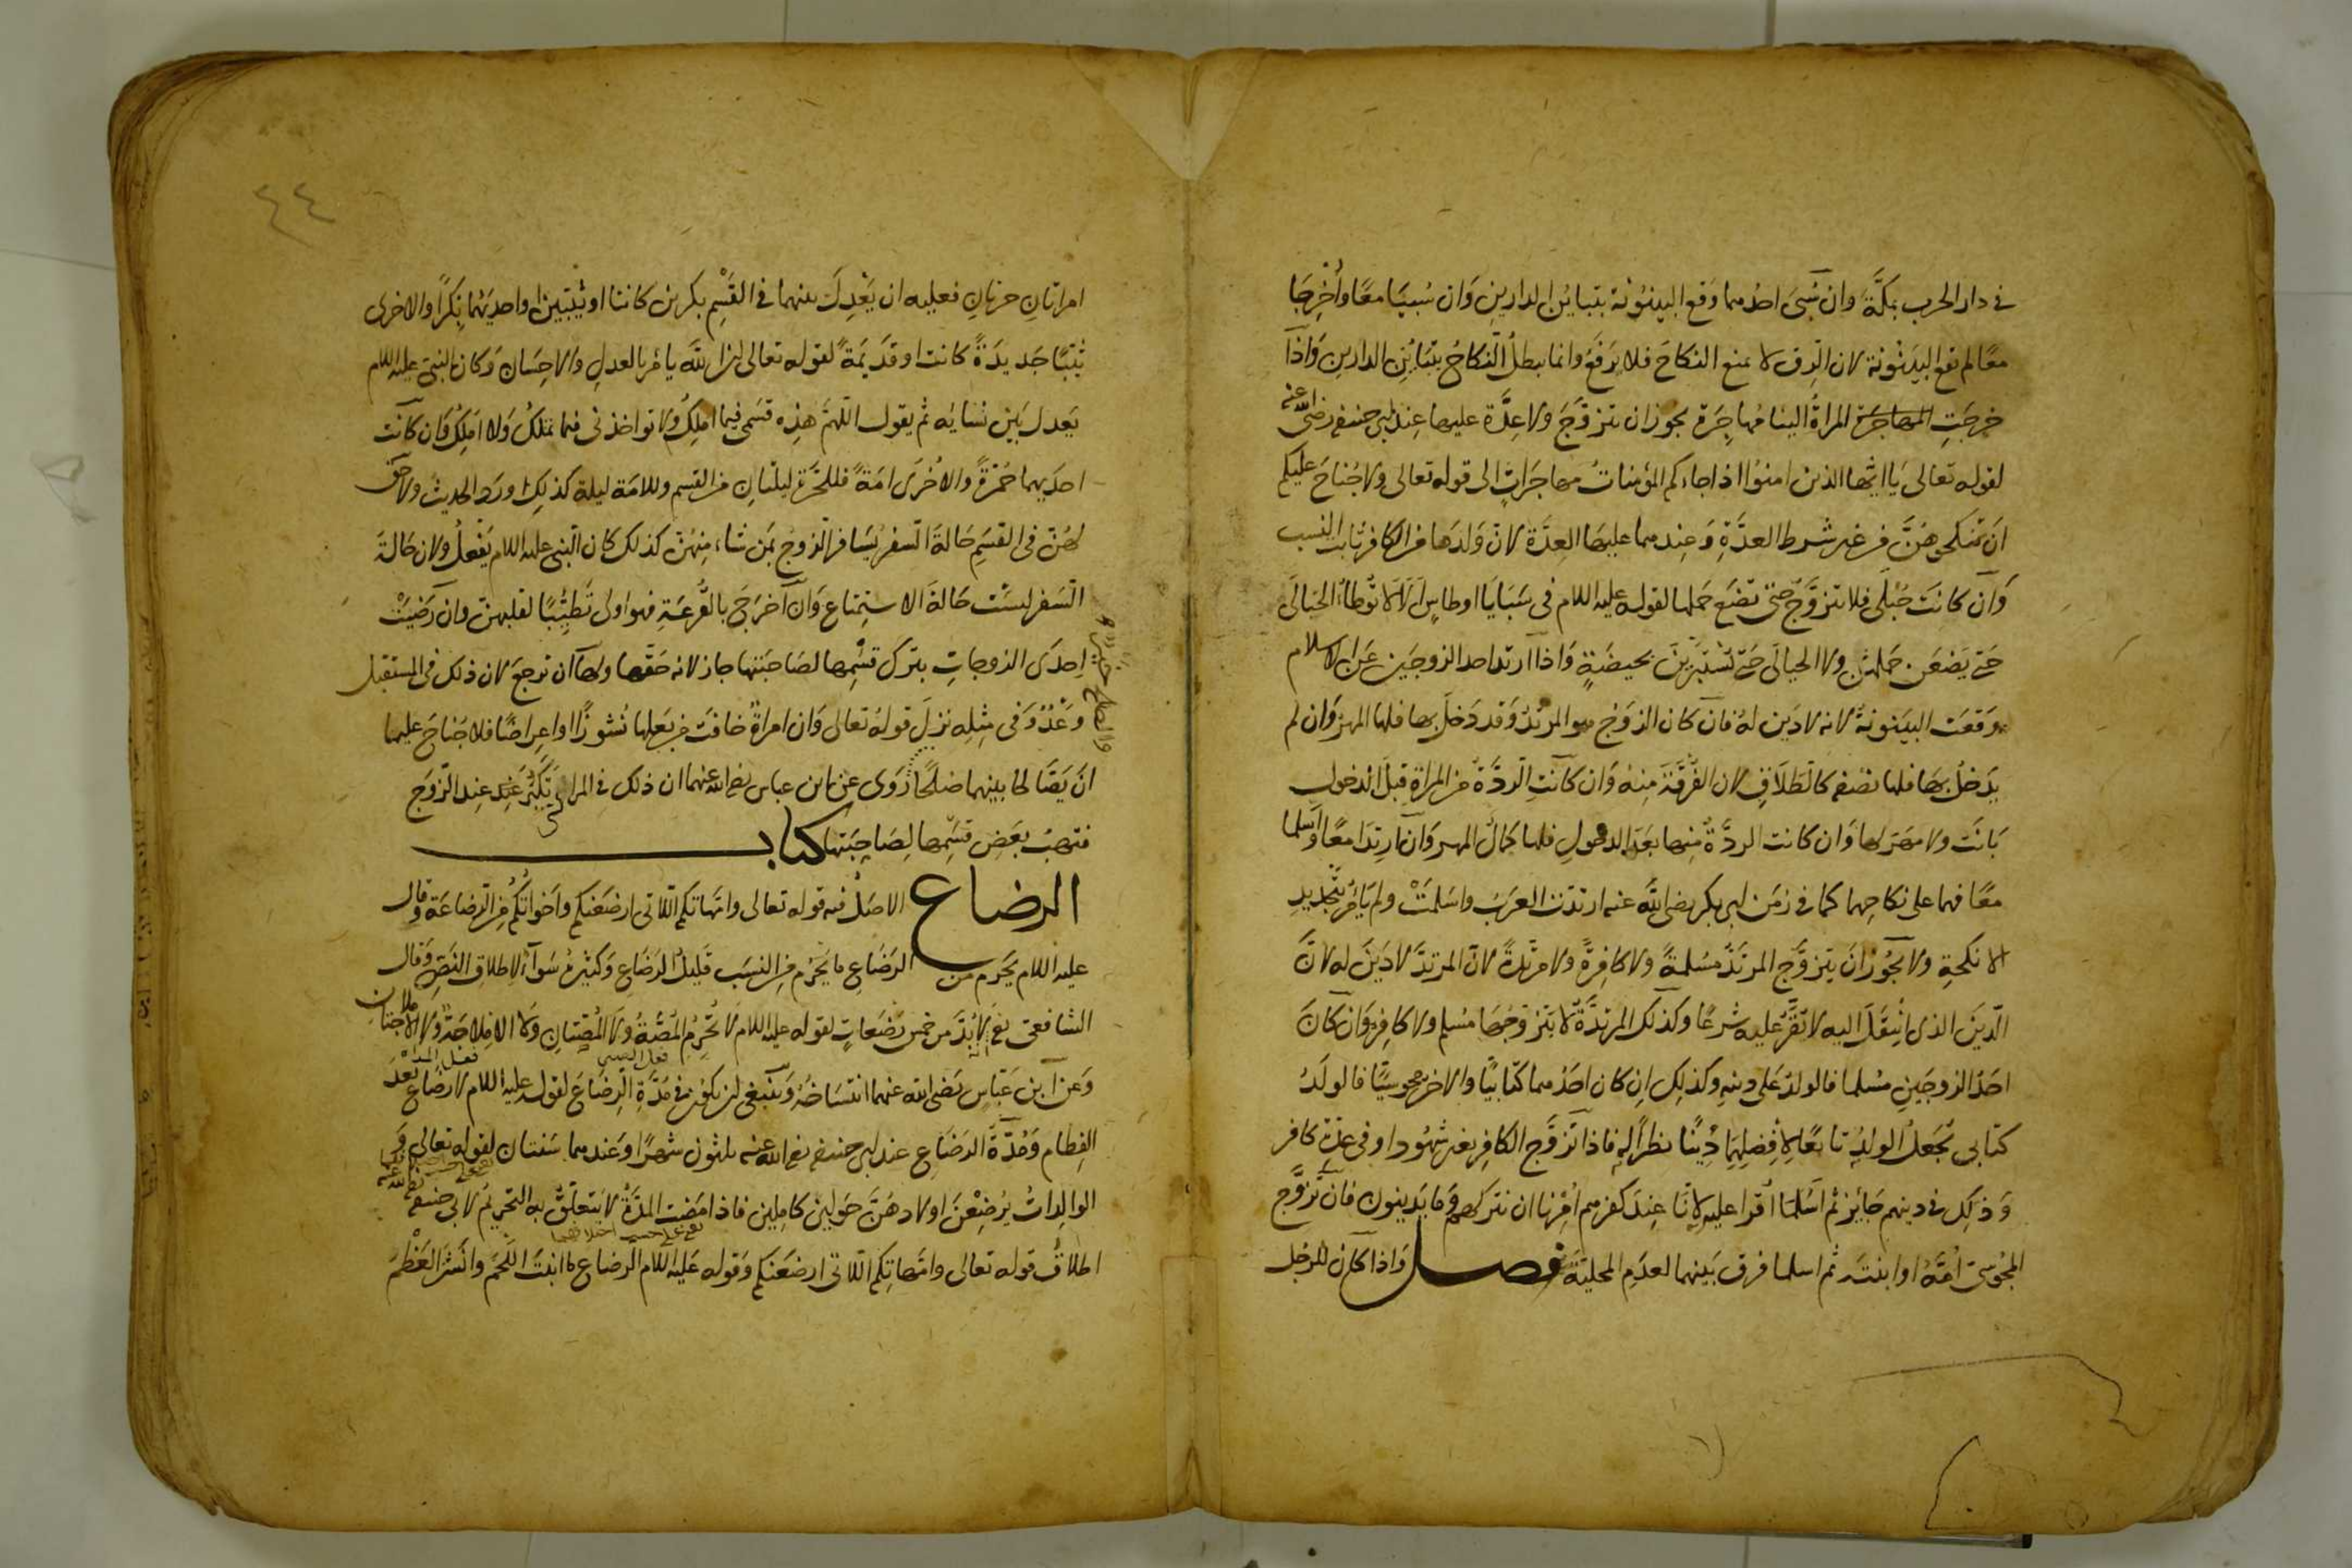 في دار الحرب بمكة وان سبى احدهما وقع البينونة بتباين الدارين وان سبيا معا واخرجا
معا لم تقع البينونة لان الرق لا يمنع النكاح فلا يرفع وانما يبطل النكاح بتباين الدارين واذا
خرجت المهاجرة المراة الينا مهاجرة يجوز ان تتزوج ولا عدة عليها عند ابي حنيفه رضي الله عنه
لقوله تعالى يا ايها الذين امنوا اذا جاءكم المؤمنات مهاجرات الى قوله تعالى ولا جناح عليكم
ان تنكحوهن من غير شرط العدة وعندهما عليها العدة لان ولدها من الكافر ثابت النسب
وان كانت حبلى فلا تتزوج حتى تضع حملها لقوله عليه اللام في سبايا اوطاس الا لا توطا الحبالى
حتى يضعن حملهن ولا الحيالى حتى تستبرين بحيضة واذا ارتد احد الزوجين عن الاسلام
وقعت البينونة لانه لا دين له فان كان الزوج هو المرتد وقد دخل بها فلها المهر وان لم
يدخل بها فلها نصفه كالطلاق لان الفرقة منه وان كانت الردة من المراة قبل الدخول
بانت ولا مهر لها وان كانت الردة منها بعد الدخول فلها كمال المهر وان ارتدا معا واسلما
معا فهما على نكاحهما كما في زمن ابي بكر رضي الله عنه ارتدت العرب واسلمت ولم يامر بتجديد
الانكحة ولا يجوز ان يتزوج المرتد مسلمة ولا كافرة ولا مرتدة لان المرتد لا دين له لان
الدين الذي انتقل اليه لا يقر عليه شرعا وكذلك المرتدة لا يتزوجها مسلم ولا كافر وان كان
احد الزوجين مسلما فالولد على دينه وكذلك ان كان احدهما كتابيا والاخر مجوسيا فالولد
كتابي تجعل الولد تابعا لافضلهما دينا نظرا له فاذا تزوج الكافر بغير شهود او في عدة كافر
وذلك في دينهم جائز ثم اسلما اقرا عليه لانا عند كفرهم امرنا ان نتركهم وما يدينون فان تزوج
المجوسي امه او ابنته ثم اسلما فرق بينهما لعدم المحلية فصل واذا كان للرجل
٤٤
امراتان حرتان فعليه ان يعدل بينهما في القسم بكرين كانتا او ثيبتين او احديهما بكرا والاخرى
ثيبا جديدة كانت او قديمة لقوله تعالى ان الله يامر بالعدل والاحسان وكان النبي عليه اللام
يعدل بين نسايه ثم يقول اللهم هذه قسمي فيما املك ولا تواخذني فيما تملك ولا املك وان كانت
احديهما حرة والاخرى امة فللحرة ليلتان من القسم وللامة ليلة كذلك ورد الحديث ولا حق
لهن في القسم حالة السفر يسافر الزوج بمن شاء منهن كذلك كان النبي عليه اللام يفعل ولان حالة
السفر ليست حالة الاستمتاع وان اخرج بالقرعة فهو اولى تطييبا لقلبهن وان رضيت
احدى الزوجات بترك قسمها لصاحبتها جاز لانه حقها ولها ان ترجع لان ذلك في المستقبل
وعد وفي مثله نزل قوله تعالى وان امراة خافت من بعلها نشوزا او اعراضا فلا جناح عليهما
ان يصالحا بينهما صلحا روى عن ابن عباس رضي الله عنهما ان ذلك في المراة تكبر عند الزوج
والصلح خير
فتهب بعض قسمها لصاحبتها كتاب
الرضاع الاصل فيه قوله تعالى وامهاتكم اللاتي ارضعنكم واخواتكم من الرضاعة وقال
عليه اللام يحرم من الرضاع ما يحرم من النسب قليل الرضاع وكثيره سواء لاطلاق النص وقال
الشافعي لا بد من خمس رضعات لقوله عليه اللام لا تحرم المصة ولا المصتان ولا الاملاجة ولا الاملاجتان
وعن ابن عباس رضي الله عنهما انتساخه وينبغي ان يكون في مدة الرضاع لقوله عليه اللام لا رضاع بعد
الفطام ومدة الرضاع عند ابي حنيفه رضي الله عنه ثلثون شهرا وعندهما سنتان لقوله تعالى
الوالدات يرضعن اولادهن حولين كاملين فاذا مضت المدة لا يتعلق به التحريم لابي حنيفه رضي الله عنه
اطلاق قوله تعالى وامهاتكم اللاتي ارضعنكم وقوله عليه اللام الرضاع ما انبت اللحم وانشر العظم